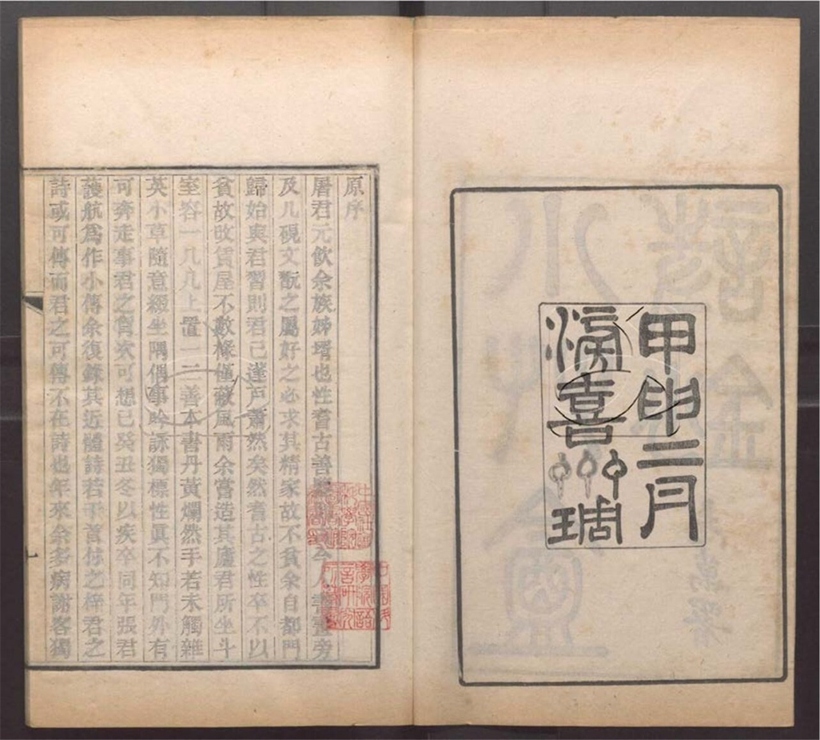 甲申二月
滂喜齊琱
原序
屠君元飲余族姊壻也性耆古善今人書畫旁
及几硯文甌之屬好之必求其精家故不貧余自都門
歸始與君習則君已蓬戶蕭然矣然耆古之性卒不以
貧故改賃屋不數椽僅蔽風雨余嘗造其廬君所坐斗
室容一几几上置一二善本書丹黃爛然手若未觸雜
英小草隨意綴坐隅偶事吟詠獨標性眞不知門外有
可奔走事君之可想已癸丑冬以疾卒同年張君
護航爲作小傳余復錄其近體詩若干首付之梓君之
詩或可傳而君之可傳不在詩也年來余多病謝客獨